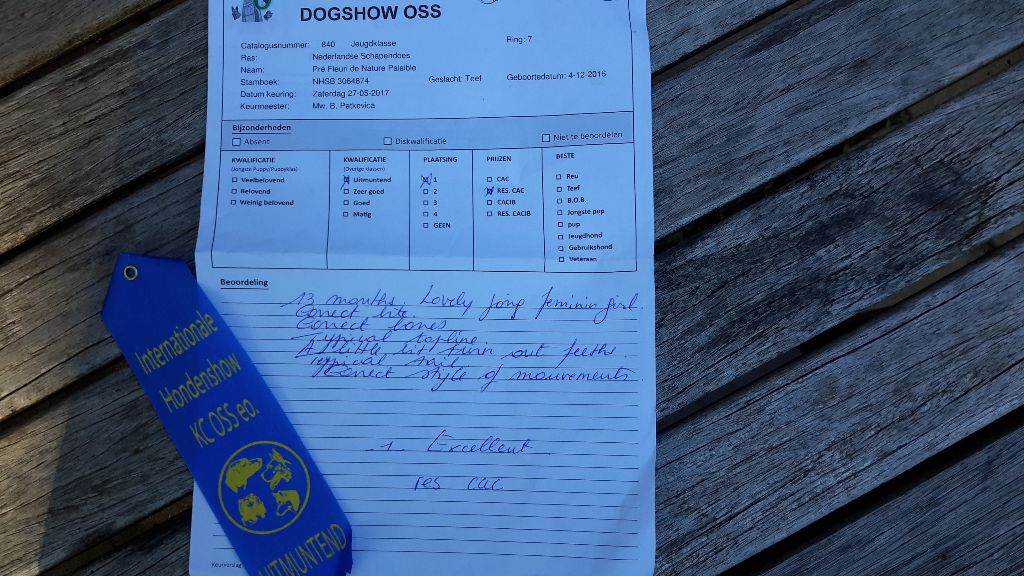 DOGSHOW OSS
Catalogusnummer: 840 Jeugdklasse Ring: 7
Ras: Nederlandse Schapendoes
Naam: Pré Fleuri de Nature Paisible
Stamboek: NHSB 3064874 Geslacht: Teef Geboortedatum: 4-12-2016
Datum keuring: Zaterdag 27-05-2017
Keurmeester: Mw. B. Petkevica
Bijzonderheden
Absent Diskwalificatie Niet te beoordelen
KWALIFICATIE KWALIFICATIE PLAATSING PRIJZEN BESTE
(Jongste Puppy/Puppyklas) (Overige klassen)
Veelbelovend Uitmuntend 1 CAC Reu
Belovend Zeer goed 2 RES. CAC Teef
Weinig belovend Goed 3 CACIB B.O.B.
Matig 4 RES. CACIB Jongste pup
GEEN pup
Jeugdhond
Gebruikshond
Veteraan
Beoordeling
13 months. Lovely jong feminin girl.
Correct bite.
Correct bones
Typical topline.
A little bit turn out feeths.
Typical tail
Correct style of mouvements.
1 Excellent
res cac
Keurverslag
Internationale
Hondenshow
KC OSS eo.
UITMUNTEND